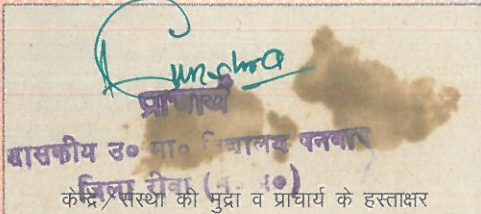 प्राचार्य
शासकीय उ० मा० विद्यालय पनवार
जिला रीवा (म० प्र०)
केन्द्र/संस्था की मुद्रा व प्राचार्य के हस्ताक्षर